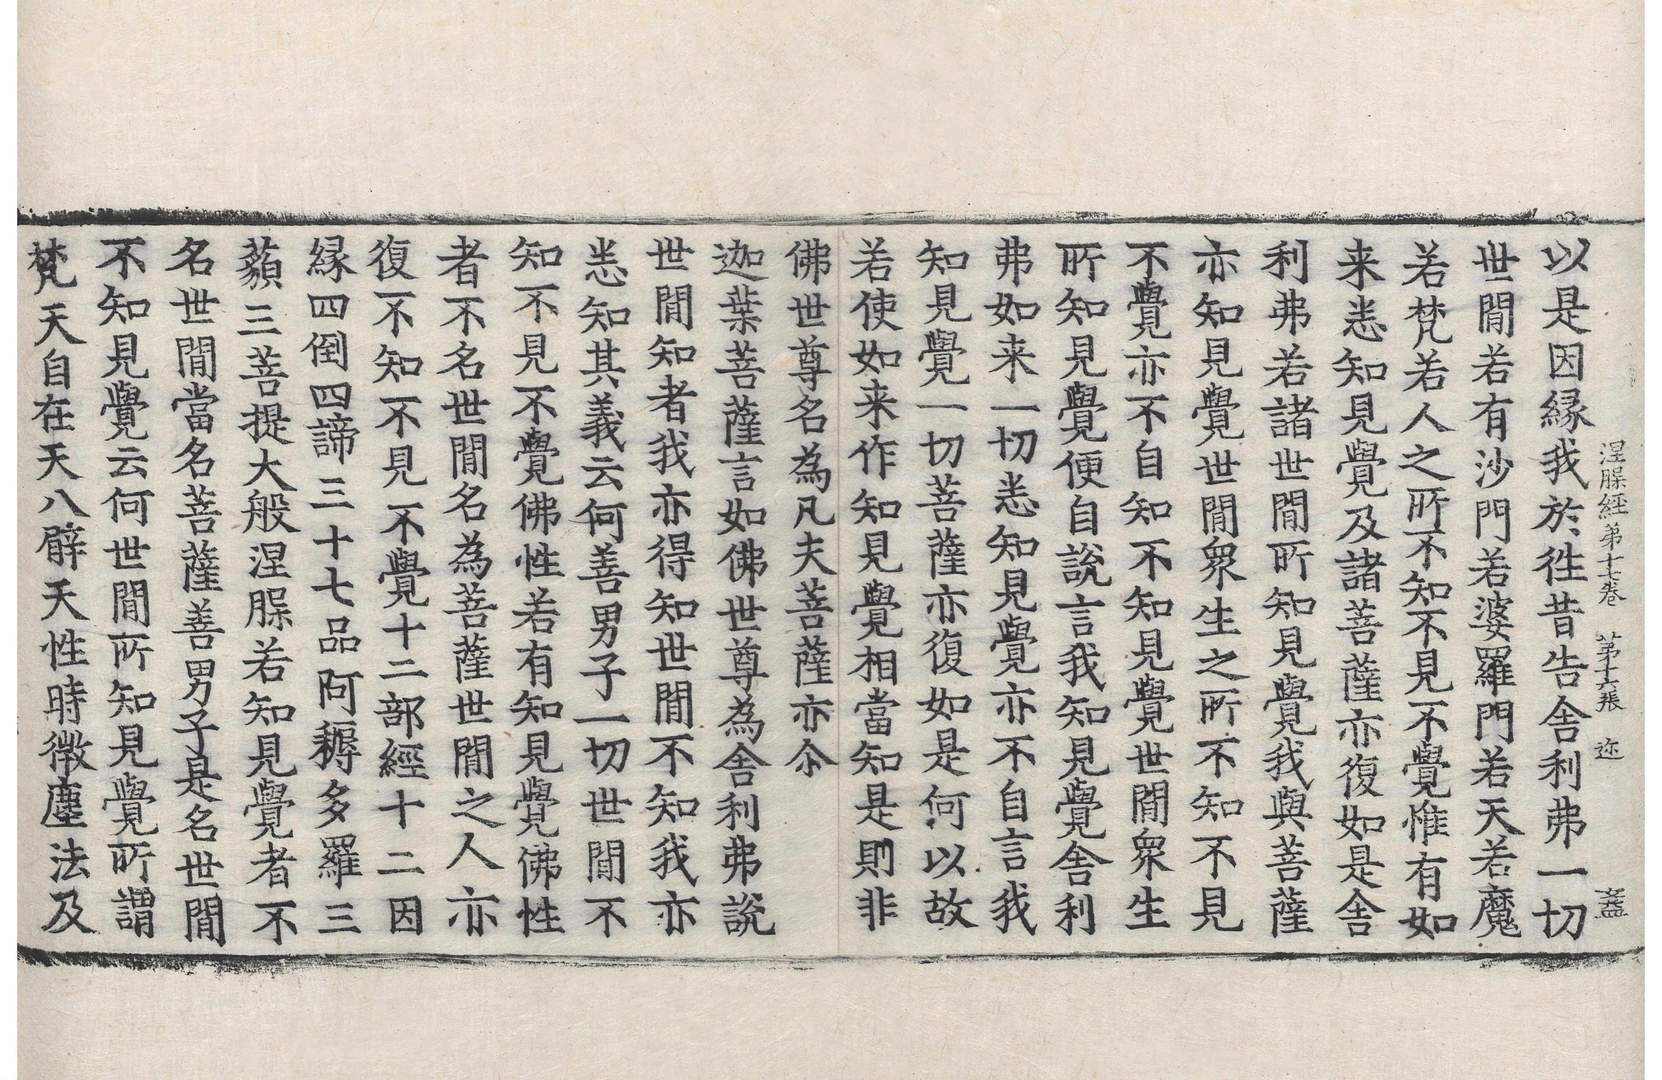 涅槃經第十七卷 第十六張 迩 盖
以是因縁我於徃昔告舎利弗一切
世閒若有沙門若婆羅門若天若魔
若梵若人之所不知不見不覺惟有如
来悉知見覺及諸菩薩亦復如是舎
利弗若諸世閒所知見覺我與菩薩
亦知見覺世閒衆生之所不知不見
不覺亦不自知不知見覺世閒衆生
所知見覺便自說言我知見覺舎利
弗如来一切悉知見覺亦不自言我
知見覺一切菩薩亦復如是何以故
若使如来作知見覺相當知是則非
佛世尊名為凡夫菩薩亦尒
迦葉菩薩言如佛世尊為舎利弗說
世閒知者我亦得知世閒不知我亦
悉知其義云何善男子一切世閒不
知不見不覺佛性若有知見覺佛性
者不名世閒名為菩薩世閒之人亦
復不知不見不覺十二部經十二因
縁四倒四諦三十七品阿耨多羅三
藐三菩提大般涅槃若知見覺者不
名世閒當名菩薩善男子是名世閒
不知見覺云何世閒所知見覺所謂
梵天自在天八臂天性時微塵法及